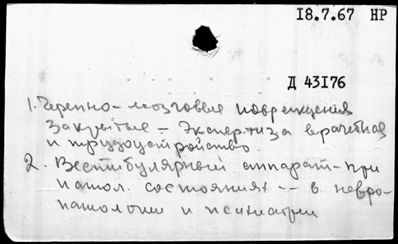 18.7.67 НР
Д 43176
1. Черепно-мозговые повреждения
закрытые - Экспертиза врачебная
и трудоустройство.
2. Вестибулярный аппарат - при
патол. состояниях -- в невро-
патологии и психиатрии